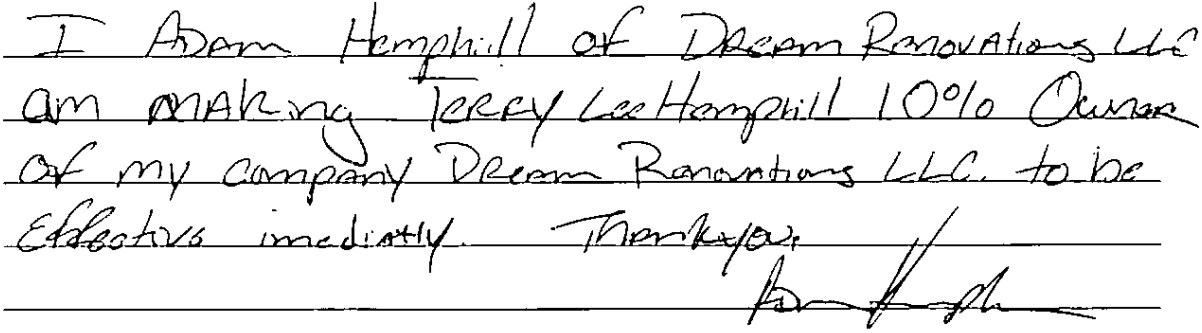 I Adam Hemphill of Dream Renovations LLC
am making Terry Lee Hemphill 10% Owner
of my company Dream Renovations LLC. to be
Effective imediatly. Thankyou.